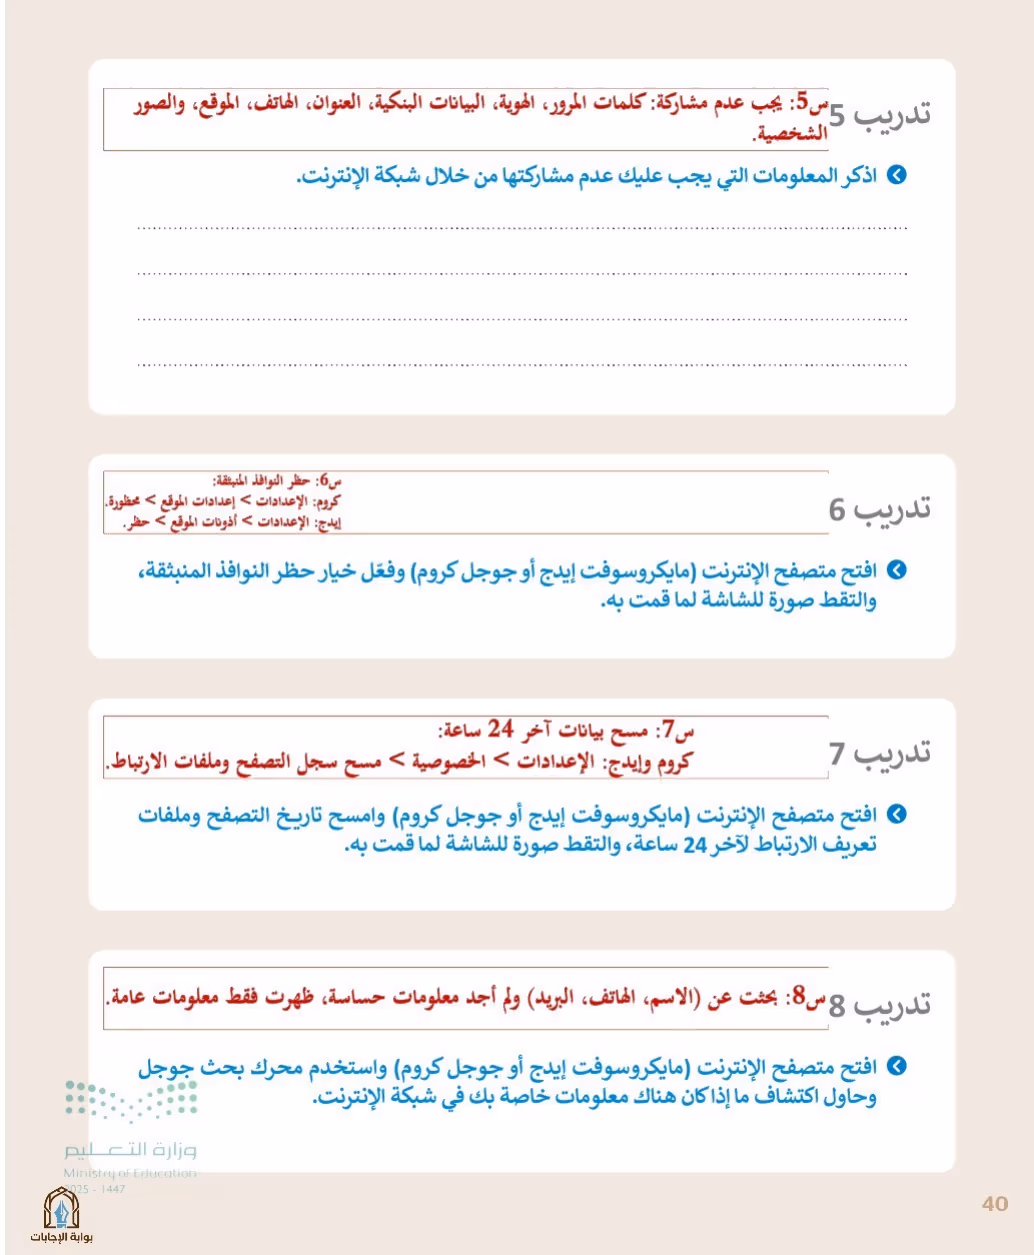 تدريب 5
س5: يجب عدم مشاركة: كلمات المرور، الهوية، البيانات البنكية، العنوان، الهاتف، الموقع، والصور
الشخصية.
اذكر المعلومات التي يجب عليك عدم مشاركتها من خلال شبكة الإنترنت.
تدريب 6
س6: حظر النوافذ المنبثقة:
كروم: الإعدادات > إعدادات الموقع > محظورة.
إيدج: الإعدادات > أذونات الموقع > حظر.
افتح متصفح الإنترنت (مايكروسوفت إيدج أو جوجل كروم) وفعّل خيار حظر النوافذ المنبثقة،
والتقط صورة للشاشة لما قمت به.
تدريب 7
س7: مسح بيانات آخر 24 ساعة:
كروم وإيدج: الإعدادات > الخصوصية > مسح سجل التصفح وملفات الارتباط.
افتح متصفح الإنترنت (مايكروسوفت إيدج أو جوجل كروم) وامسح تاريخ التصفح وملفات
تعريف الارتباط لآخر 24 ساعة، والتقط صورة للشاشة لما قمت به.
تدريب 8
س8: بحثت عن (الاسم، الهاتف، البريد) ولم أجد معلومات حساسة، ظهرت فقط معلومات عامة.
افتح متصفح الإنترنت (مايكروسوفت إيدج أو جوجل كروم) واستخدم محرك بحث جوجل
وحاول اكتشاف ما إذا كان هناك معلومات خاصة بك في شبكة الإنترنت.
وزارة التعليم
Ministry of Education
2025 - 1447
بوابة الإجابات
40